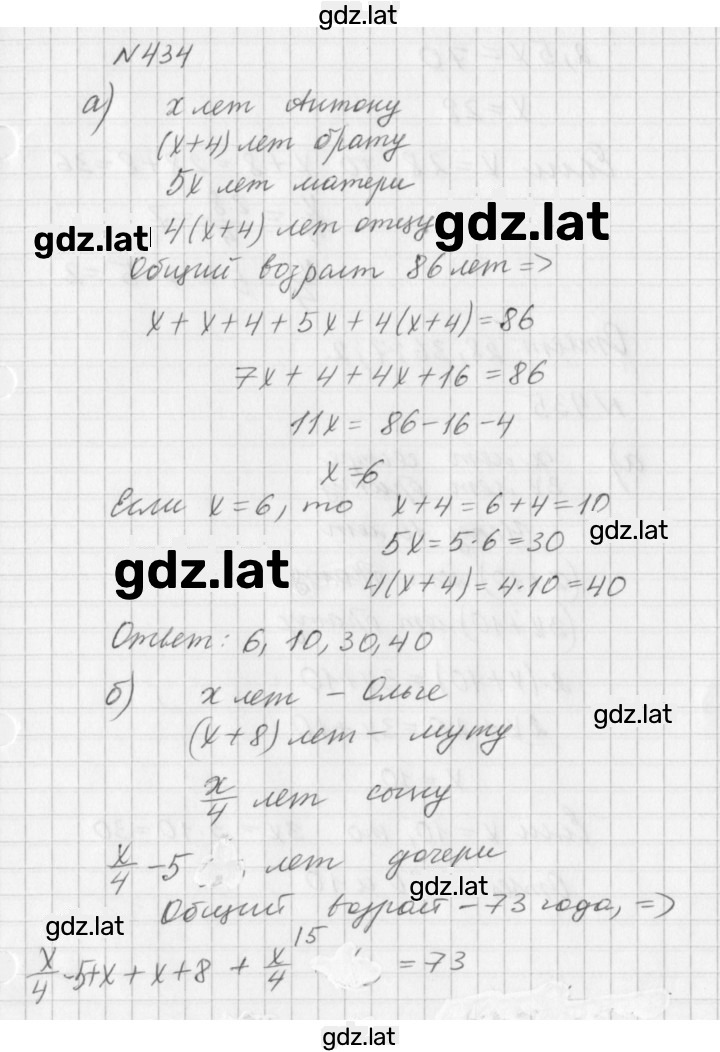 gdz.lat
N434
а) x лет Антону
(x+4) лет брату
5x лет матери
gdz.lat
gdz.lat
4(x+4) лет отцу
Общий возраст 86 лет =>
x + x + 4 + 5x + 4(x+4) = 86
7x + 4 + 4x + 16 = 86
11x = 86 - 16 - 4
x = 6
Если x = 6, то x + 4 = 6 + 4 = 10
gdz.lat
5x = 5·6 = 30
gdz.lat
4(x+4) = 4·10 = 40
Ответ: 6, 10, 30, 40
б) x лет - Ольге
gdz.lat
(x+8) лет - мужу
x/4 лет сыну
x/4 - 5 лет дочери
gdz.lat
Общий возраст - 73 года, =>
gdz.lat
15
x/4 - 5 + x + x + 8 + x/4 = 73
gdz.lat